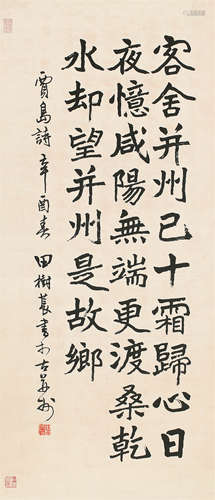 客舍并州已十霜歸心日
夜憶咸陽無端更渡桑乾
水却望并州是故鄉
賈島詩 辛酉春 田樹萇書於古并州